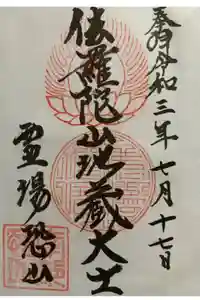 奉拝令和三年七月十七日
伽羅陀山地蔵大士
霊場恐山